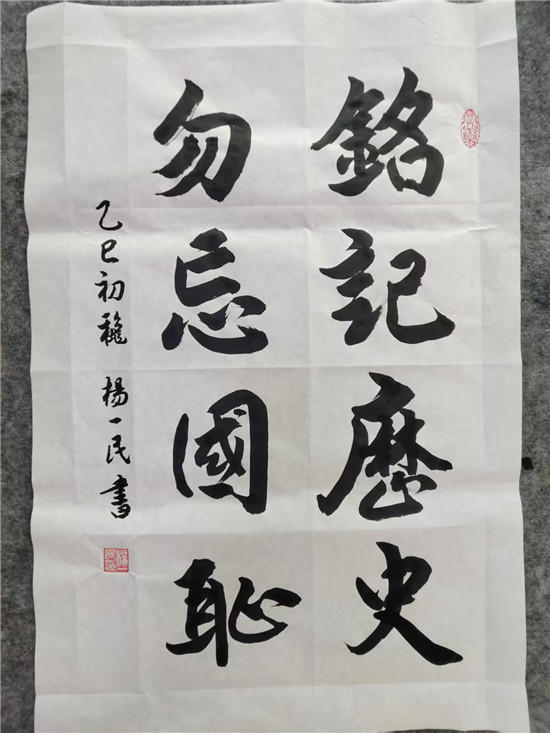 銘記歷史
勿忘國恥
乙巳初龝 楊一民書